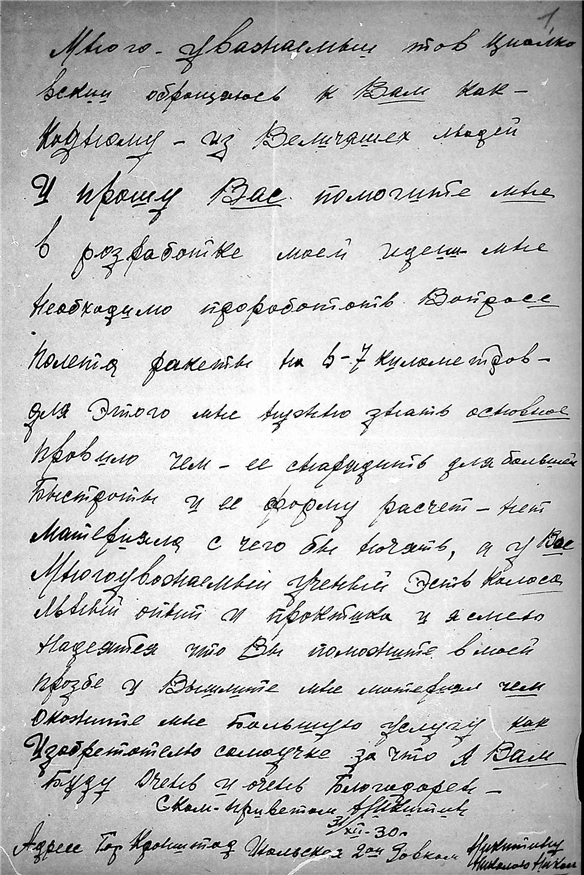 1
Много-уважаемыи тов Циолко
вскии обращаюсь к Вам как-
Кодному - из Величашех людей
И прошу Вас помогите мне
в розработке моей идеи мне
необходимо проработоть Вопросе
Полета ракеты на 6-7 километров-
для этого мне нужно знать основное
провило чем - ее снарядить для большей
Быстроты и ее форму расчет - нет
Материяла с чего бы начать, а у Вас
Многоуважаемый ученый Эсть Колоса
льный опыт и проктика и я смею
Надеятся что Вы поможите в моей
прозбе и Вышлите мне материял чем
окожите мне большую услугу как
Изобретотелю самоучке за что я Вам
Буду очень и очень Благодарен -
Ском-приветом Никитин
3/XII-30г
Адресс Гор Кронштад Июльской 2ой Никитину
Николаю